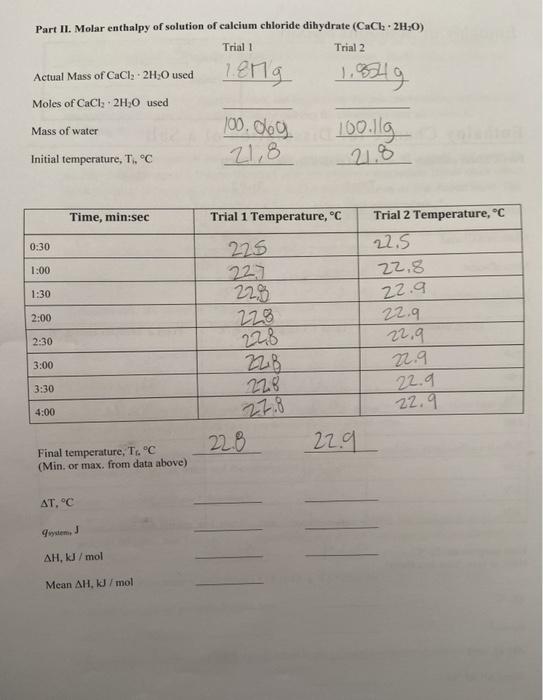 Part II. Molar enthalpy of solution of calcium chloride dihydrate (CaCl₂ · 2H₂O)
Trial 1 Trial 2
Actual Mass of CaCl₂ · 2H₂O used 1.817g 1.854g
Moles of CaCl₂ · 2H₂O used
Mass of water 100.06g 100.11g
Initial temperature, Tᵢ, °C 21.8 21.8
Time, min:sec Trial 1 Temperature, °C Trial 2 Temperature, °C
0:30 22.5 22.5
1:00 22.7 22.8
1:30 22.8 22.9
2:00 22.8 22.9
2:30 22.8 22.9
3:00 22.8 22.9
3:30 22.8 22.9
4:00 22.8 22.9
Final temperature, Tf, °C 22.8 22.9
(Min. or max. from data above)
ΔT, °C
qsystem, J
ΔH, kJ / mol
Mean ΔH, kJ / mol